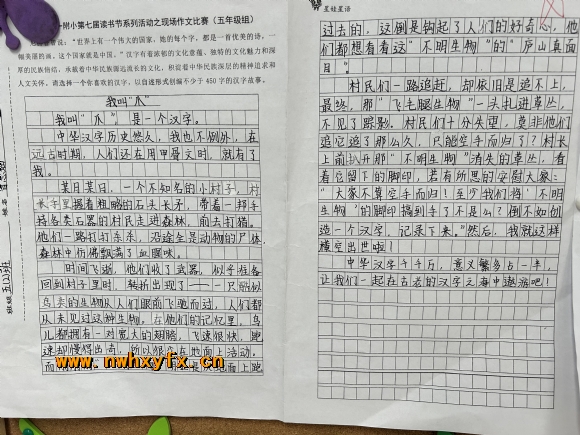 附小第七届读书节系列活动之现场作文比赛（五年级组）
说：“世界上有一个伟大的国家，她的每个字，都是一首优美的诗，一
幅美丽的画，这个国家就是中国。”汉字有着浓郁的文化意蕴、独特的文化魅力和深
厚的民族情结，承载着中华民族源远流长的文化，积淀着中华民族深层的精神追求和
人文关怀。请选择一个你喜欢的汉字，以自述形式创编不少于 450 字的汉字故事。
我叫“爪”
我叫“爪”，是一个汉字。
中华汉字历史悠久，我也不例外，在
远古时期，人们还在用甲骨文时，就有了
我。
某月某日，一个不知名的小村子，村
长手里握着粗略的石头长矛，带着一邦手
持各类石器的村民走进森林，前去打猎。
他们一路打打杀杀，沿途全是动物的尸体
森林中仿佛飘满了血腥味。
时间飞逝，他们收了武器，似乎准备
回到村子里时，转折出现了——一只酷似
鸟类的生物从人们眼前飞驰而过，人们都
从未见过这种生物，在他们的记忆里，鸟
儿都拥有一对宽大的翅膀，飞速很快，跑
速却慢得出奇，所以很少在地面上活动。
www.nwhxyfx.cn
过去的，这倒是钩起了人们的好奇心，他
们都想看看这“不明生物”的“庐山真面
目”。
村民们一路追赶，却依旧是追不上，
最终，那“飞毛腿生物”一头扎进草丛，
不见了踪影。村民们十分失望，莫非他们
追它追了那么久，只能空手而归了？村长
上前扒开那“不明生物”消失的草丛，看
着它留下的脚印，若有所思的安慰大家：
“大家不算空手而归！至少我们将‘不明
生物’的脚印搞到手了不是么？倒不如创
造一个汉字，记录下来。”然后，我就这样
横空出世啦！
中华汉字千千万，意义繁多占一半，
让我们一起在古老的汉字之海中遨游吧！
星娃星语